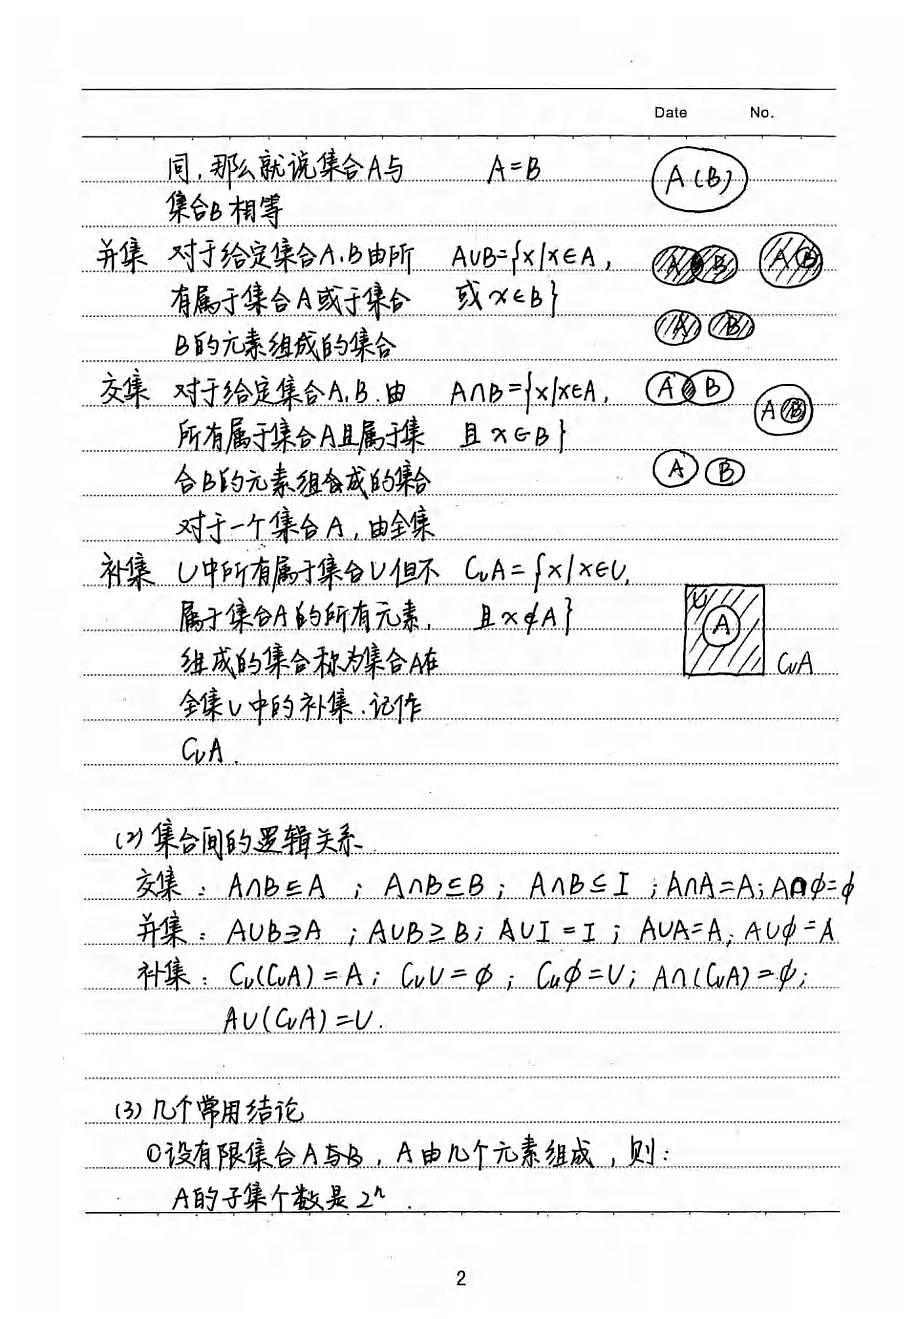 Date No.
同,那么就说集合A与 A=B A(B)
集合B相等
并集 对于给定集合A,B由所 A∪B={x|x∈A, A B A B
有属于集合A或于集合 或x∈B}
B的元素组成的集合 A B
交集 对于给定集合A,B.由 A∩B={x|x∈A, A B
所有属于集合A且属于集 且x∈B} A B
合B的元素组合成的集合 A B
对于一个集合A,由全集
补集 U中所有属于集合U但不 C∪A={x|x∈U,
属于集合A的所有元素, 且x∉A} U A
组成的集合称为集合A在 C∪A
全集U中的补集.记作
C∪A.
(2)集合间的逻辑关系.
交集:A∩B⊆A;A∩B⊆B;A∩B⊆I;A∩A=A;A∩φ=φ
并集:A∪B⊇A;A∪B⊇B;A∪I=I;A∪A=A;A∪φ=A
补集:C∪(C∪A)=A;C∪U=φ;C∪φ=U;A∩(C∪A)=φ;
A∪(C∪A)=U.
(3)几个常用结论
①设有限集合A与B,A由几个元素组成,则:
A的子集个数是2ⁿ.
2